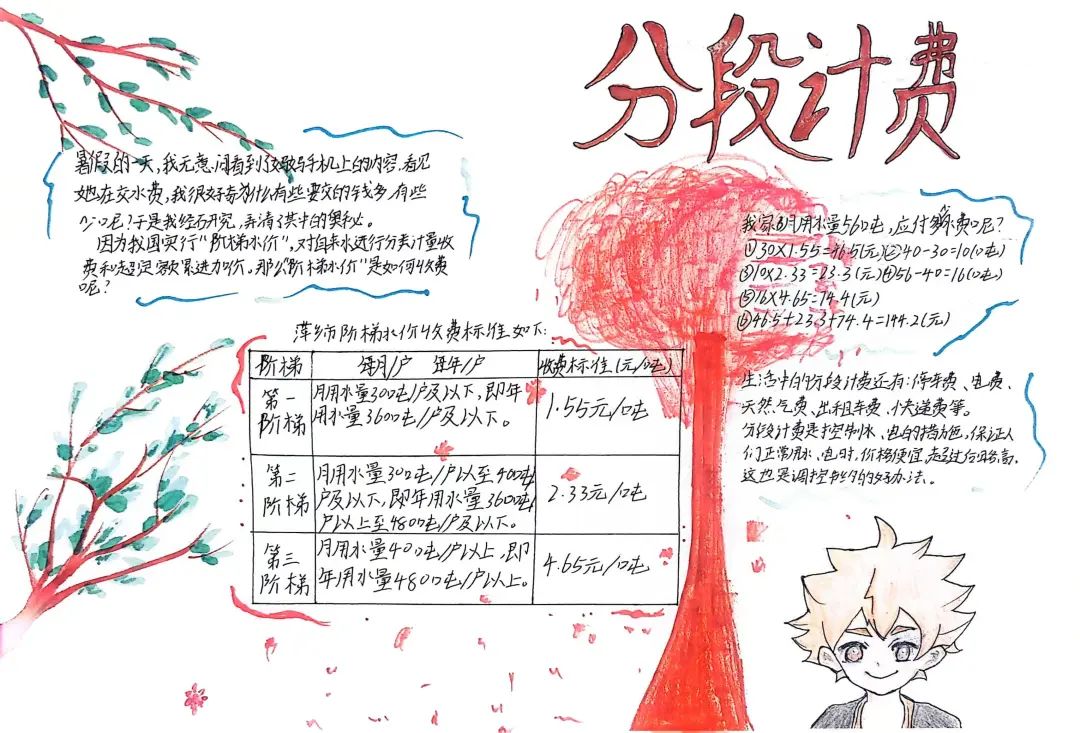 分段计费
暑假的一天,我无意间看到了手机上的内容.看见
她在交水费,我很好奇为什么有些要交的钱多,有些
少呢?于是我经研究,弄清了其中的奥秘。
因为我国实行“阶梯水价”,对自来水进行分类计量收
费和超定额累进加价。那么“阶梯水价”是如何收费
呢?
我家8月用水量56吨,应付多少水费呢?
①30×1.55=46.5(元)②40-30=10(吨)
③10×2.33=23.3(元)④56-40=16(吨)
⑤16×4.65=74.4(元)
⑥46.5+23.3+74.4=144.2(元)
萍乡市阶梯水价收费标准如下:
阶梯 每月/户 每年/户 收费标准(元/吨)
第一阶梯 月用水量30吨/户及以下,即年用水量360吨/户及以下。 1.55元/吨
第二阶梯 月用水量30吨/户以至40吨/户及以下,即年用水量360吨/户以上至480吨/户及以下。 2.33元/吨
第三阶梯 月用水量40吨/户以上,即年用水量480吨/户以上。 4.65元/吨
生活中的分段计费还有:停车费、电费、
天然气费、出租车费、快递费等。
分段计费是控制水、电的,保证人
们正常用水、电时,价格便宜,超过后略高,
这也是调控节约的好办法。